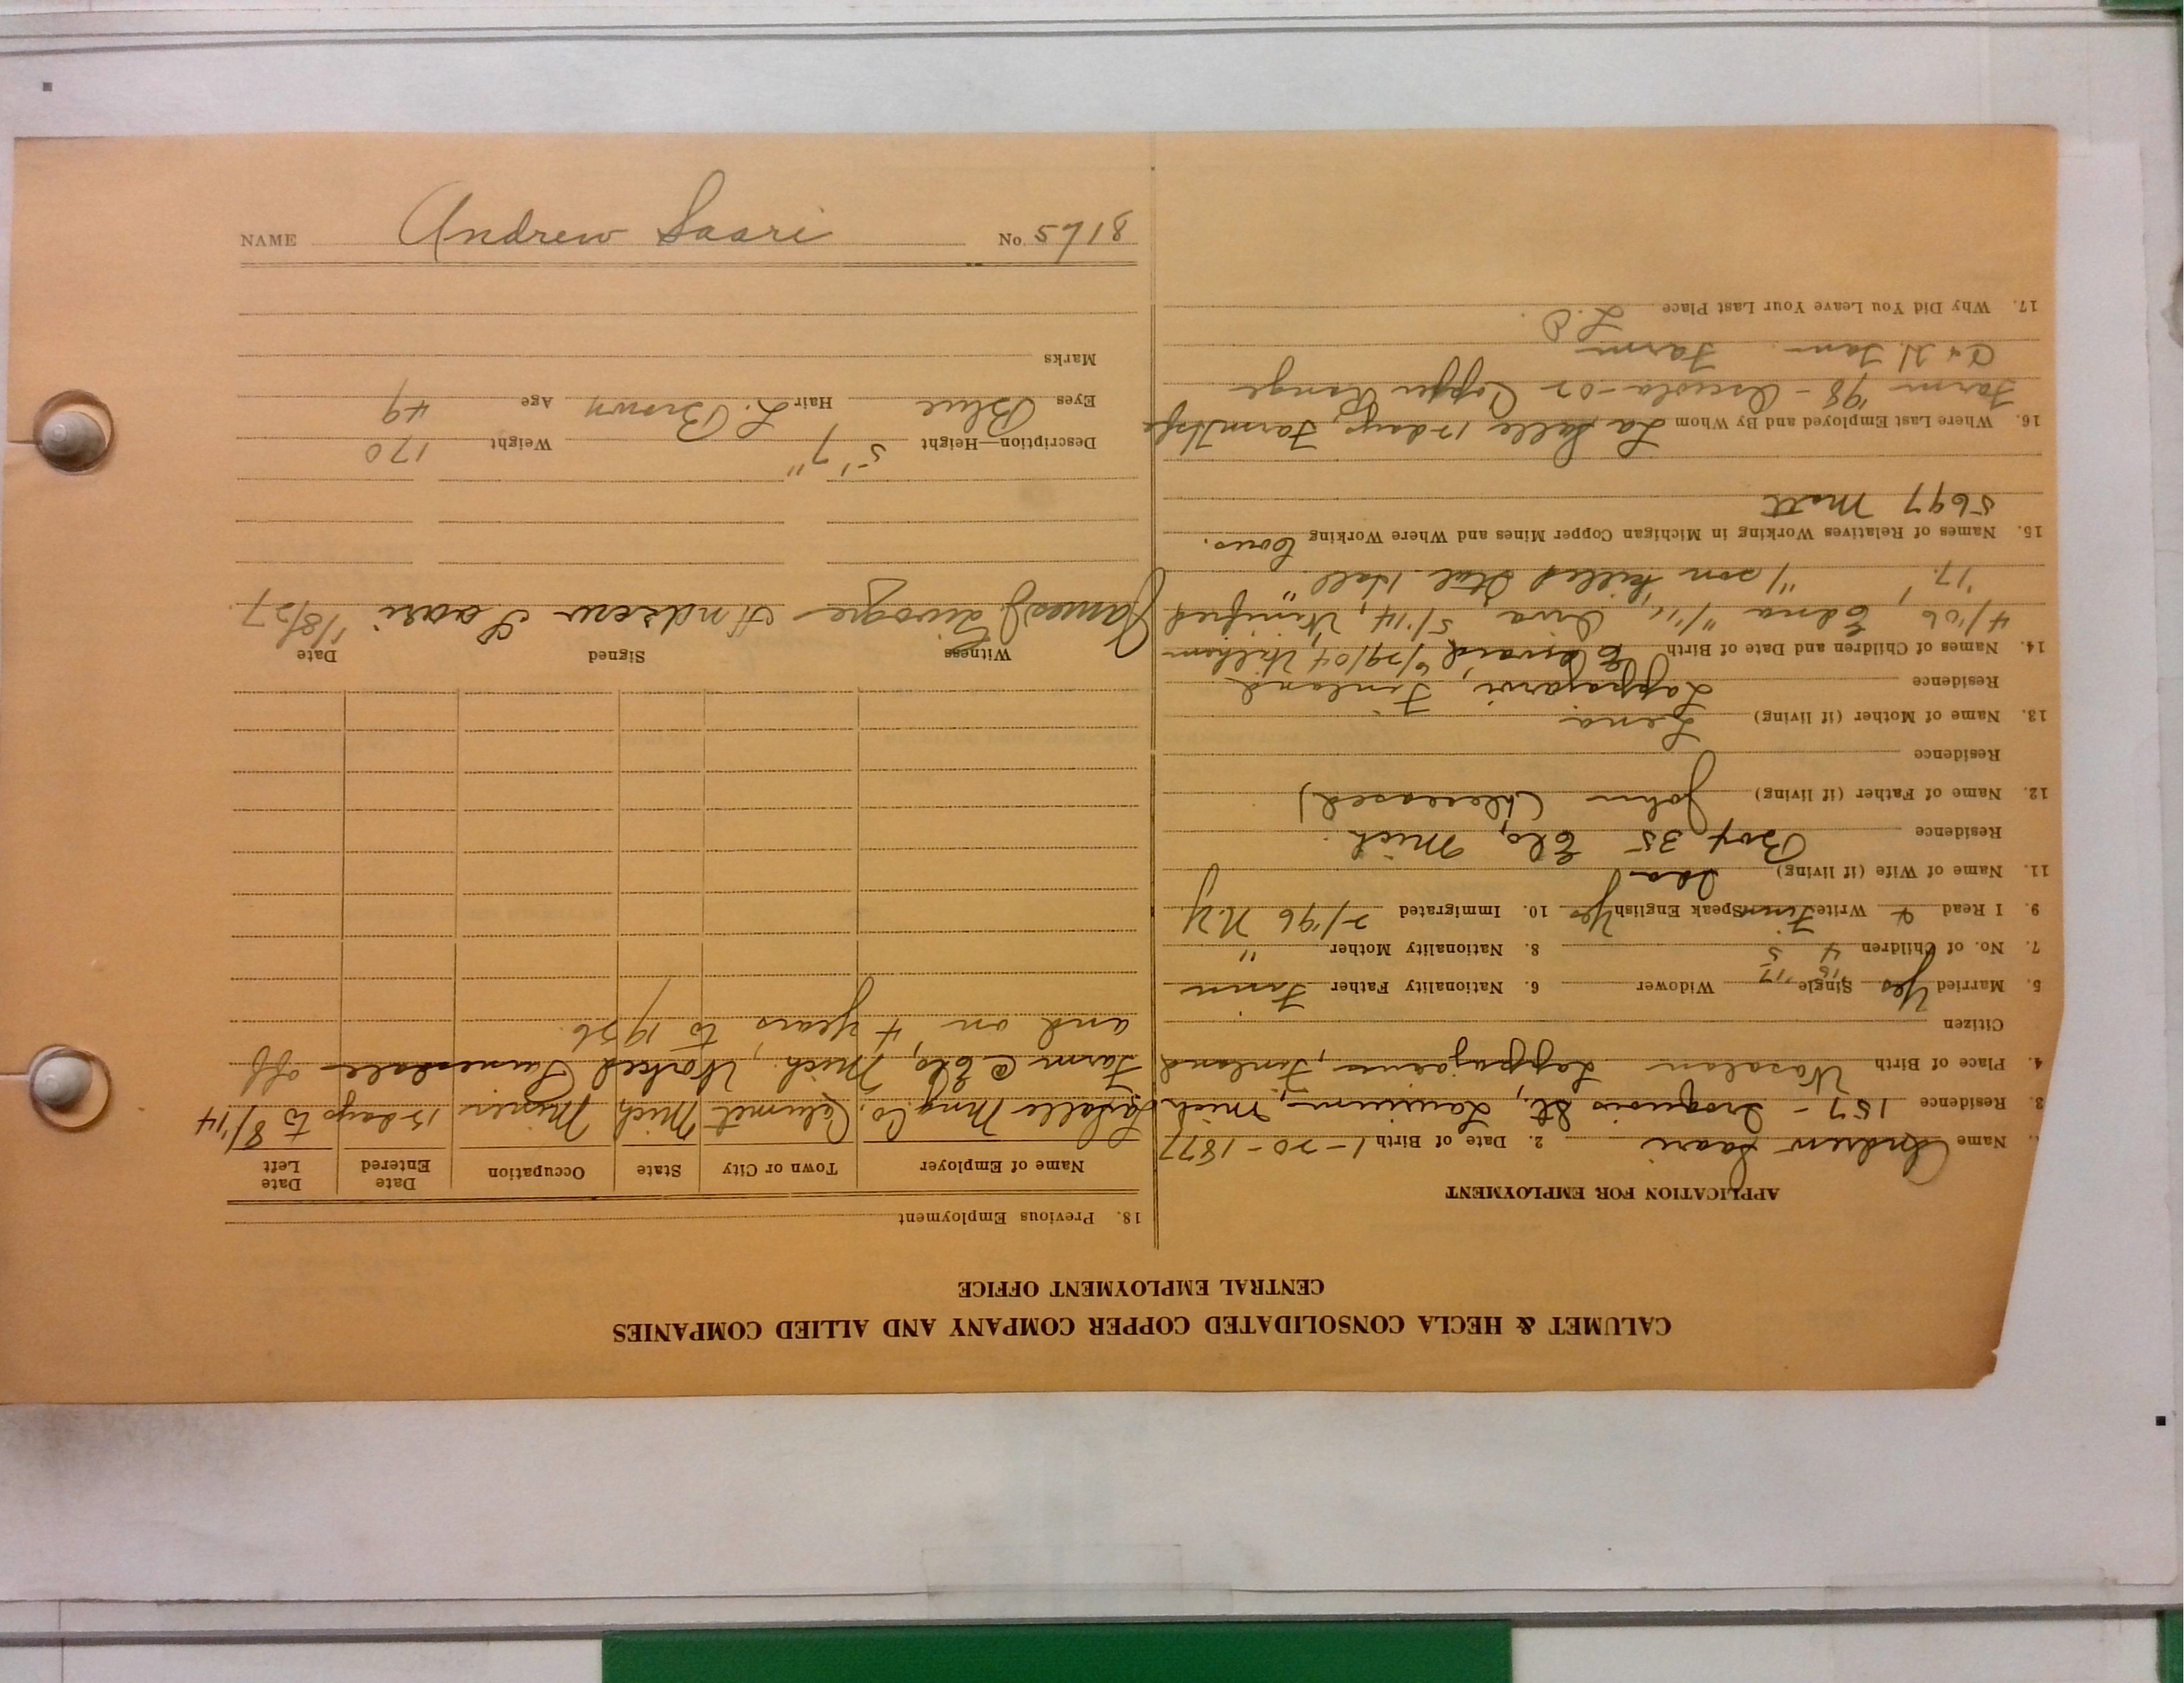 NAME Andrew Saari No. 5718
CALUMET & HECLA CONSOLIDATED COPPER COMPANY AND ALLIED COMPANIES
CENTRAL EMPLOYMENT OFFICE
APPLICATION FOR EMPLOYMENT
Name Andrew Saari 2. Date of Birth 1-20-1877
3. Residence 157 - Iroquois St., Laurium, Mich
4. Place of Birth Wasalan Lappajarvi, Finland
Citizen
5. Married Yes Single Widower 6. Nationality Father Finn
7. No. of Children 4 8. Nationality Mother "
9. I Read & Write Finn Speak English Yes 10. Immigrated 2/'96 N.Y.
11. Name of Wife (if living) Ida
Residence Box 35 Elo, Mich.
12. Name of Father (if living) John (deceased)
Residence
13. Name of Mother (if living) Lena
Residence Lappajarvi, Finland
14. Names of Children and Date of Birth Edward 6/29/04, Wilhem
4/'06 Edna "/11, Area 5/'14, Winifred
'17. "/son killed Ital Hall"
15. Names of Relatives Working in Michigan Copper Mines and Where Working Cous.
5697 Matt
16. Where Last Employed and By Whom La Salle 15 days, Farm
Farm '98 - Osceola-02 Copper Range
C & H. Farm
17. Why Did You Leave Your Last Place L.O.
18. Previous Employment
Name of Employer Town or City State Occupation Date Entered Date Left
LaSalle Mng. Co. Calumet Mich Miner 15 days to 8/'14
Farm @ Elo, Mich. Worked Painesdale off
and on 4 years to 1926
Witness Signed Date
James J Andrew Saari 1/8/27.
Description—Height 5' 7" Weight 170
Eyes Blue Hair L. Brown Age 49
Marks